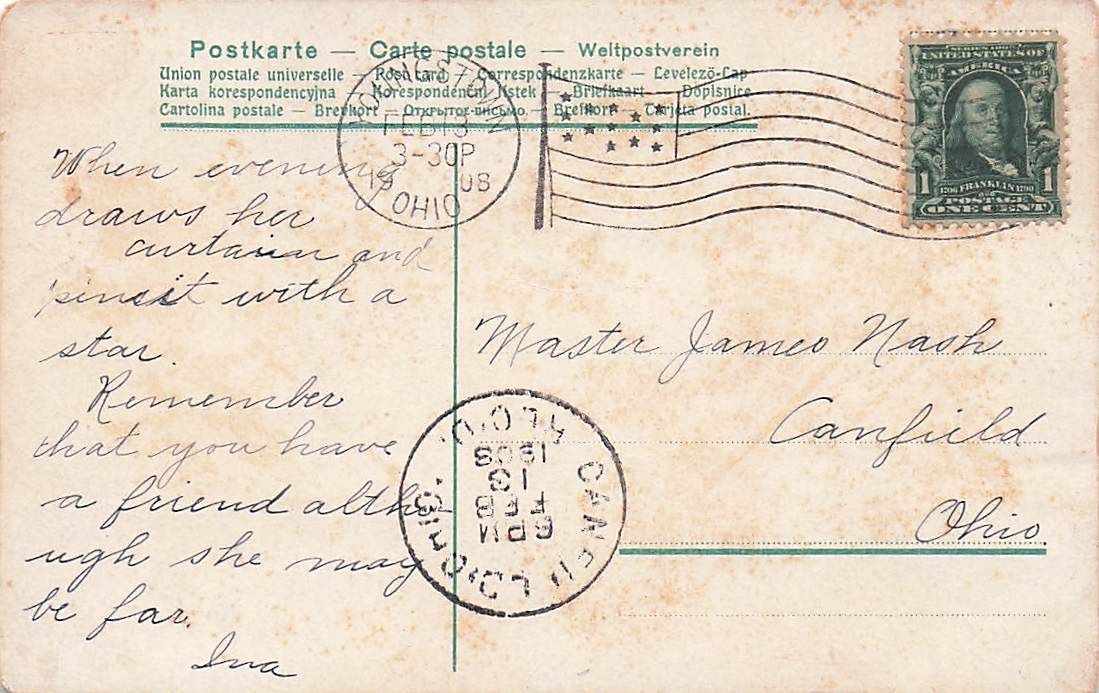 Postkarte — Carte postale — Weltpostverein
Union postale universelle — Post card — Correspondenzkarte — Levelező-Lap
Karta korespondencyjna — Korespondenční lístek — Briefkaart — Dopisnice
Cartolina postale — Brevkort — Открытое письмо — Brefkort — Tarjeta postal.
YOUNGSTOWN
FEB 13
3-30P
1908
OHIO
UNITED STATES OF
AMERICA
1 1706 FRANKLIN 1790 1
POSTAGE
ONE CENT
When evening
draws her
curtain and
pins it with a
star.
Remember
that you have
a friend altho
ugh she may
be far.
Ina
Master James Nash
Canfield
Ohio
CANFIELD, OHIO.
6PM
FEB
13
1908
REC'D.